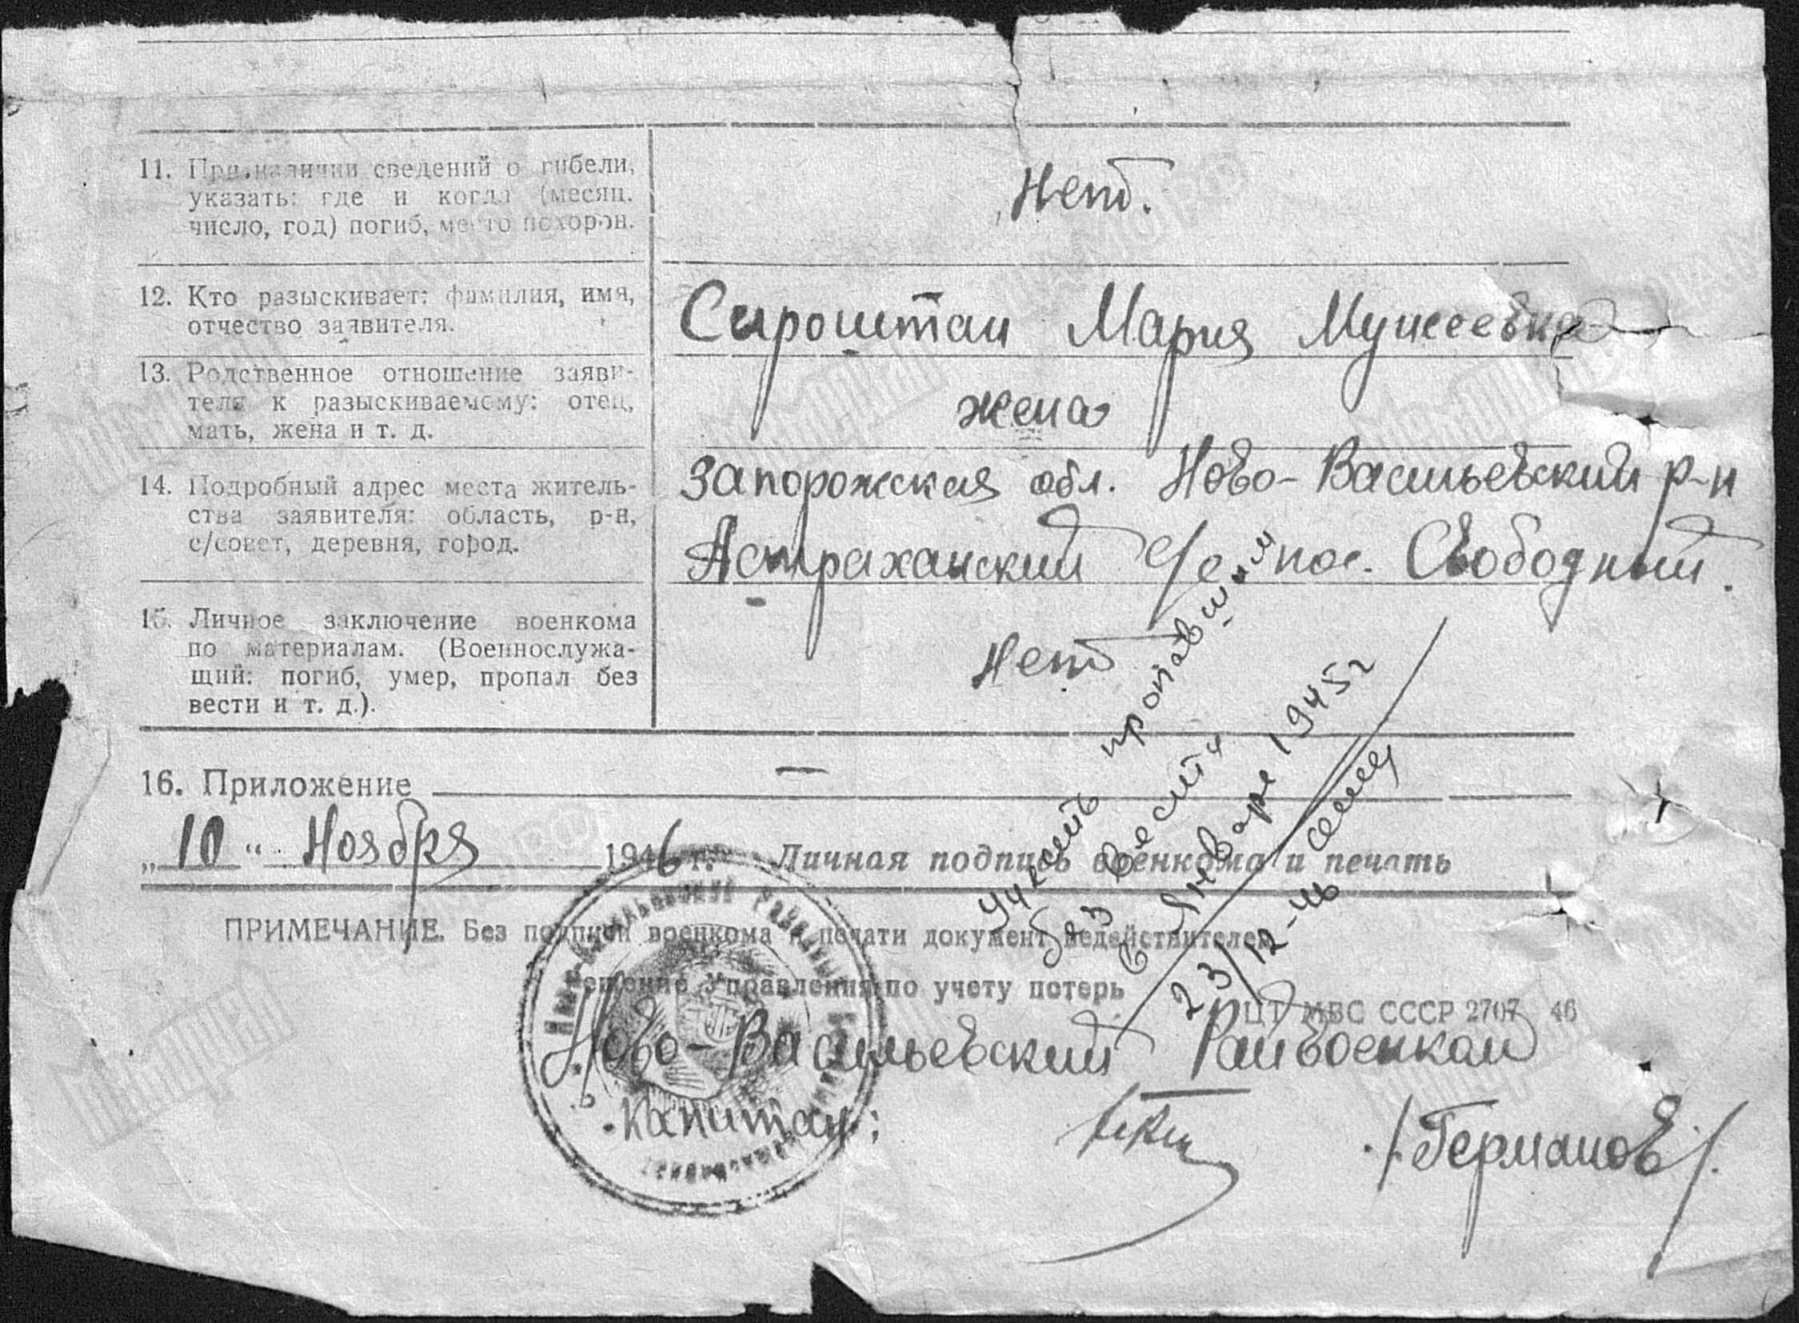 11. При наличии сведений о гибели,
указать: где и когда (месяц,
число, год) погиб, место похорон.
Нет.
12. Кто разыскивает: фамилия, имя,
отчество заявителя.
Сыроштан Мария Мусеевна
13. Родственное отношение заяви-
теля к разыскиваемому: отец,
мать, жена и т. д.
жена
14. Подробный адрес места житель-
ства заявителя: область, р-н,
с/совет, деревня, город.
Запорожская обл. Ново-Васильевский р-н
Астраханский с/с. пос. Свободный.
15. Личное заключение военкома
по материалам. (Военнослужа-
щий: погиб, умер, пропал без
вести и т. д.).
Нет
учесть пропавшим
без вести
в январе 1945 г
23/12-46
16. Приложение —
„10“ Ноября 1946 г. Личная подпись военкома и печать
ПРИМЕЧАНИЕ. Без подписи военкома и печати документ недействителен
Решение Управления по учету потерь
ЦТ МВС СССР 2707 46
Ново-Васильевский Райвоенком
Капитан:
/Германов/.
Мемориал